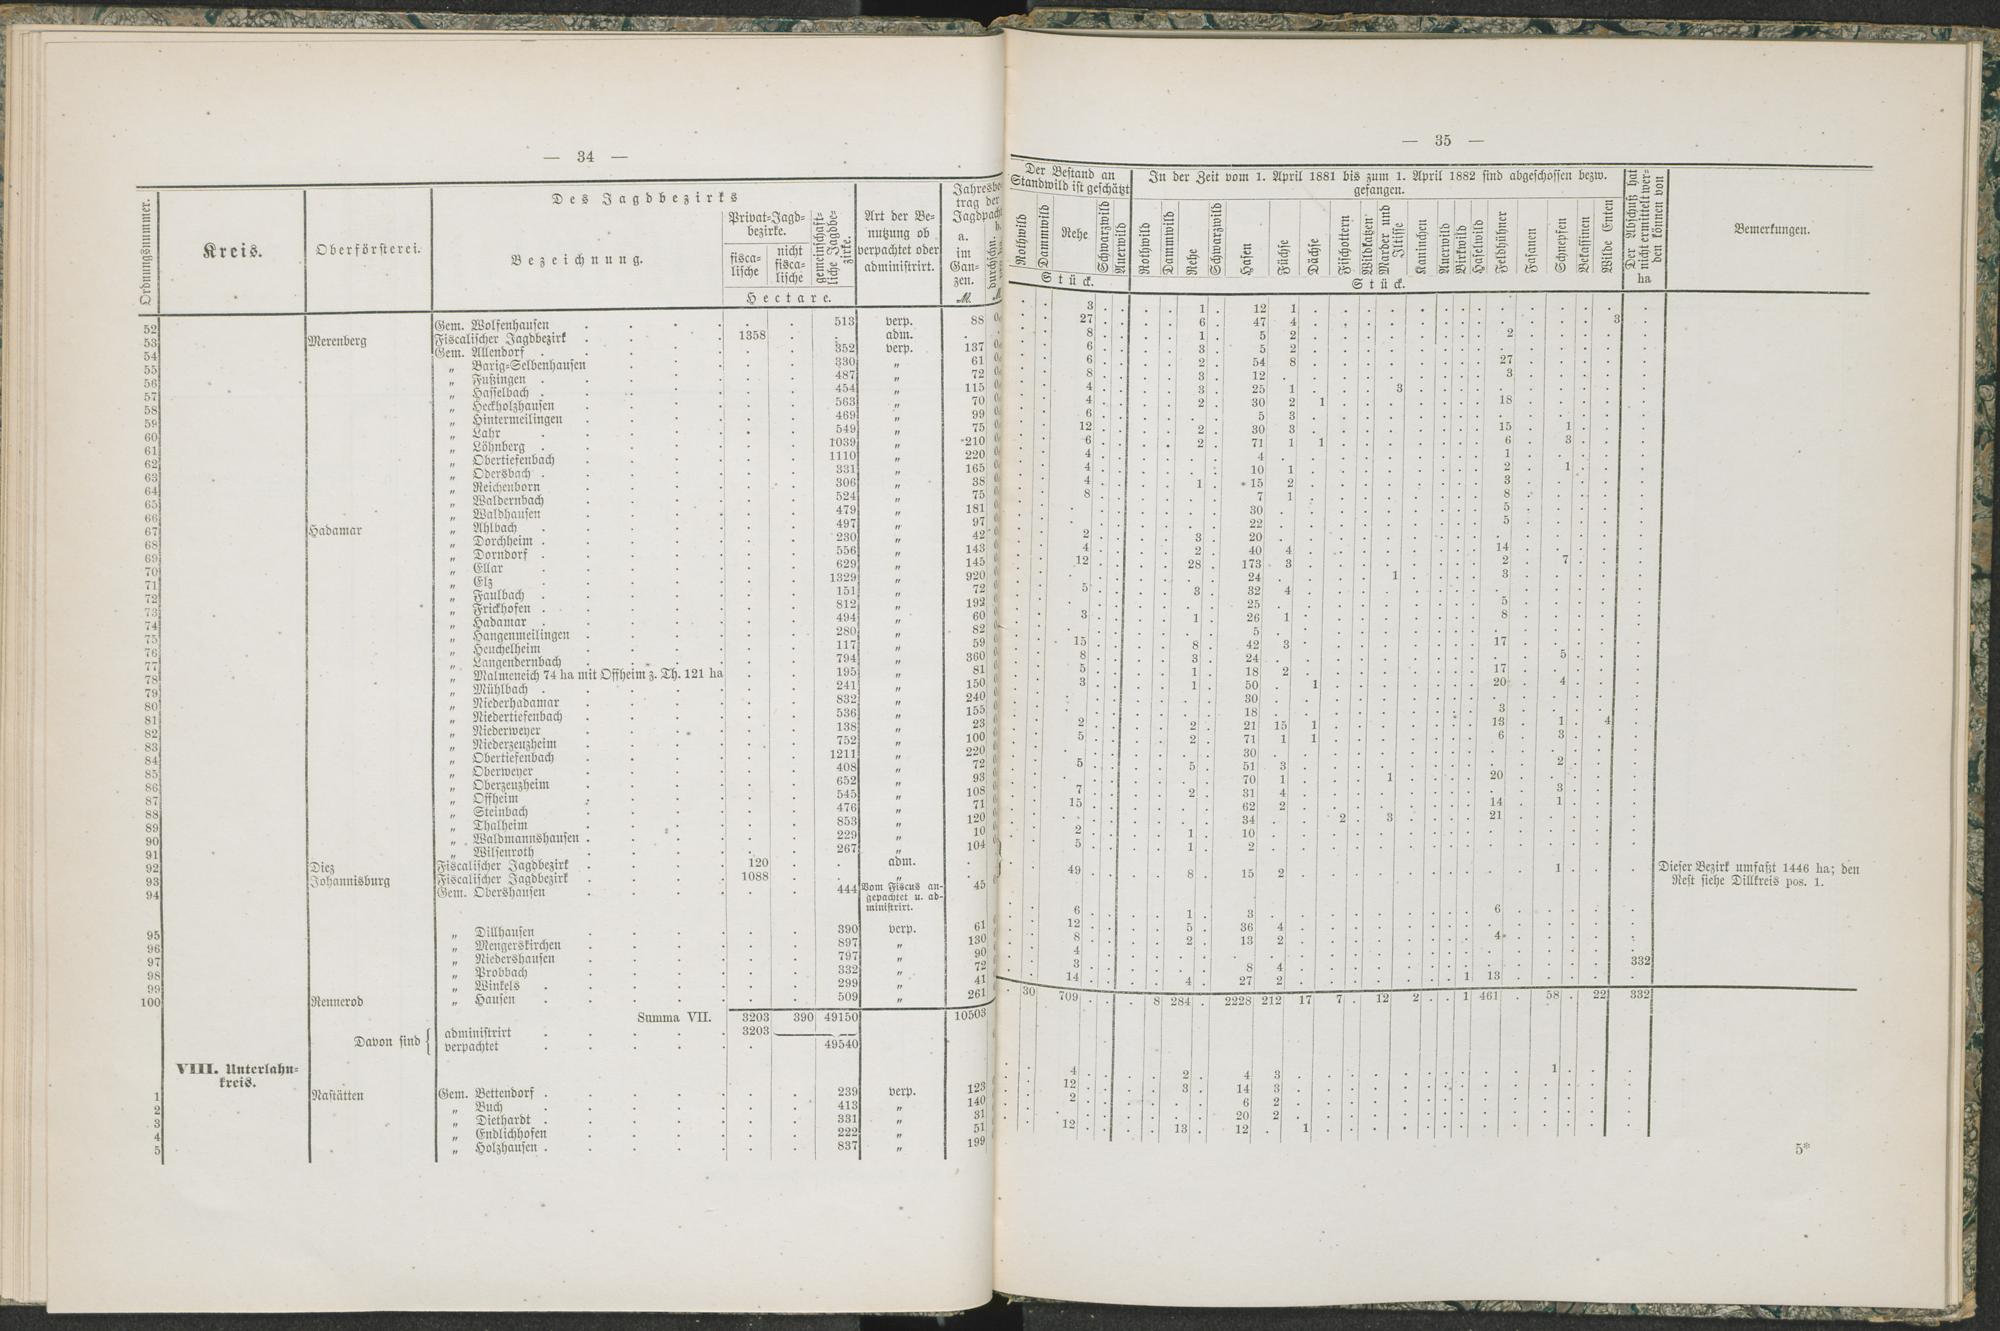 — 34 —
Ordnungsnummer.
Kreis.
Oberförsterei.
Des Jagdbezirks
Bezeichnung.
Privat-Jagdbezirke.
fiscalische
nicht fiscalische
gemeinschaftliche Jagdbezirke.
Hectare.
Art der Benutzung ob verpachtet oder administrirt.
Jahresbetrag der Jagdpacht
a. im Ganzen.
M.
b. durchschn.
52 Gem. Wolfenhausen . . . . . . 513 verp. 88
53 Merenberg Fiscalischer Jagdbezirk . . . . 1358 . . adm. .
54 Gem. Allendorf . . . . . . 352 verp. 137
55 „ Barig-Selbenhausen . . . . . 330 „ 61
56 „ Fußingen . . . . . . 487 „ 72
57 „ Hasselbach . . . . . . 454 „ 115
58 „ Heckholzhausen . . . . . . 563 „ 70
59 „ Hintermeilingen . . . . . . 469 „ 99
60 „ Lahr . . . . . . 549 „ 75
61 „ Löhnberg . . . . . . 1039 „ 210
62 „ Obertiefenbach . . . . . . 1110 „ 220
63 „ Odersbach . . . . . . 331 „ 165
64 „ Reichenborn . . . . . . 306 „ 38
65 „ Waldernbach . . . . . . 524 „ 75
66 „ Waldhausen . . . . . . 479 „ 181
67 Hadamar „ Ahlbach . . . . . . 497 „ 97
68 „ Dorchheim . . . . . . 230 „ 42
69 „ Dorndorf . . . . . . 556 „ 143
70 „ Ellar . . . . . . 629 „ 145
71 „ Elz . . . . . . 1329 „ 920
72 „ Faulbach . . . . . . 151 „ 72
73 „ Frickhofen . . . . . . 812 „ 192
74 „ Hadamar . . . . . . 494 „ 60
75 „ Hangenmeilingen . . . . . . 280 „ 82
76 „ Heuchelheim . . . . . . 117 „ 59
77 „ Langendernbach . . . . . . 794 „ 360
78 „ Malmeneich 74 ha mit Offheim z. Th. 121 ha . . 195 „ 81
79 „ Mühlbach . . . . . . 241 „ 150
80 „ Niederhadamar . . . . . . 832 „ 240
81 „ Niedertiefenbach . . . . . . 536 „ 155
82 „ Niederweyer . . . . . . 138 „ 23
83 „ Niederzeuzheim . . . . . . 752 „ 100
84 „ Obertiefenbach . . . . . . 1211 „ 220
85 „ Oberweyer . . . . . . 408 „ 72
86 „ Oberzeuzheim . . . . . . 652 „ 93
87 „ Offheim . . . . . . 545 „ 108
88 „ Steinbach . . . . . . 476 „ 71
89 „ Thalheim . . . . . . 853 „ 120
90 „ Waldmannshausen . . . . . . 229 „ 10
91 „ Wilsenroth . . . . . . 267 „ 104
92 Diez Fiscalischer Jagdbezirk . . . . 120 . . adm. .
93 Johannisburg Fiscalischer Jagdbezirk . . . . 1088 . . „ .
94 Gem. Obershausen . . . . . . 444 Vom Fiscus angepachtet u. administrirt. 45
95 „ Dillhausen . . . . . . 390 verp. 61
96 „ Mengerskirchen . . . . . . 897 „ 130
97 „ Niedershausen . . . . . . 797 „ 90
98 „ Probbach . . . . . . 332 „ 72
99 „ Winkels . . . . . . 299 „ 41
100 Rennerod „ Hausen . . . . . . 509 „ 261
Summa VII. 3203 390 49150 10503
Davon sind { administrirt . . . . . 3203
verpachtet . . . . . . 49540
VIII. Unterlahnkreis.
1 Nastätten Gem. Bettendorf . . . . . . 239 verp. 123
2 „ Buch . . . . . . 413 „ 140
3 „ Diethardt . . . . . . 331 „ 31
4 „ Endlichhofen . . . . . . 222 „ 51
5 „ Holzhausen . . . . . . 837 „ 199
— 35 —
Der Bestand an Standwild ist geschätzt
Rothwild
Dammwild
Rehe
Schwarzwild
Auerwild
Stück.
In der Zeit vom 1. April 1881 bis zum 1. April 1882 sind abgeschossen bezw. gefangen.
Rothwild
Dammwild
Rehe
Schwarzwild
Hasen
Füchse
Dächse
Fischottern
Wildkatzen
Marder und Iltisse
Kaninchen
Auerwild
Birkwild
Haselwild
Feldhühner
Fasanen
Schnepfen
Bekassinen
Wilde Enten
Stück.
Der Abschuß hat nicht ermittelt werden können von
ha
Bemerkungen.
3 1 12 1
27 6 47 4 3
8 1 5 2 2
6 3 5 2
6 2 54 8 27
8 3 12 3
4 3 25 1 3
4 2 30 2 1 18
6 5 3
12 2 30 3 15 1
6 2 71 1 1 6 3
4 4 1
4 10 1 2 1
4 1 15 2 3
8 7 1 8
30 5
22 5
2 3 20
4 2 40 4 14
12 28 173 3 2 7
24 1 3
5 3 32 4
25 5
3 1 26 1 8
5
15 8 42 3 17
8 3 24 5
5 1 18 2 17
3 1 50 1 20 4
30
18 3
2 2 21 15 1 13 1 4
5 2 71 1 1 6 3
30
5 5 51 3 2
70 1 1 20
7 2 31 4 3
15 62 2 14 1
34 2 3 21
2 1 10
5 1 2
49 8 15 2 1 Dieser Bezirk umfaßt 1446 ha; den
Rest siehe Dillkreis pos. 1.
6 1 3 6
12 5 36 4
8 2 13 2 4
4
3 8 4 332
14 4 27 2 1 13
30 709 . . . 8 284 . 2228 212 17 7 . 12 2 . . 1 461 . 58 . 22 332
4 2 4 3 1
12 3 14 3
2 6 2
20 2
12 13 12 1
5*